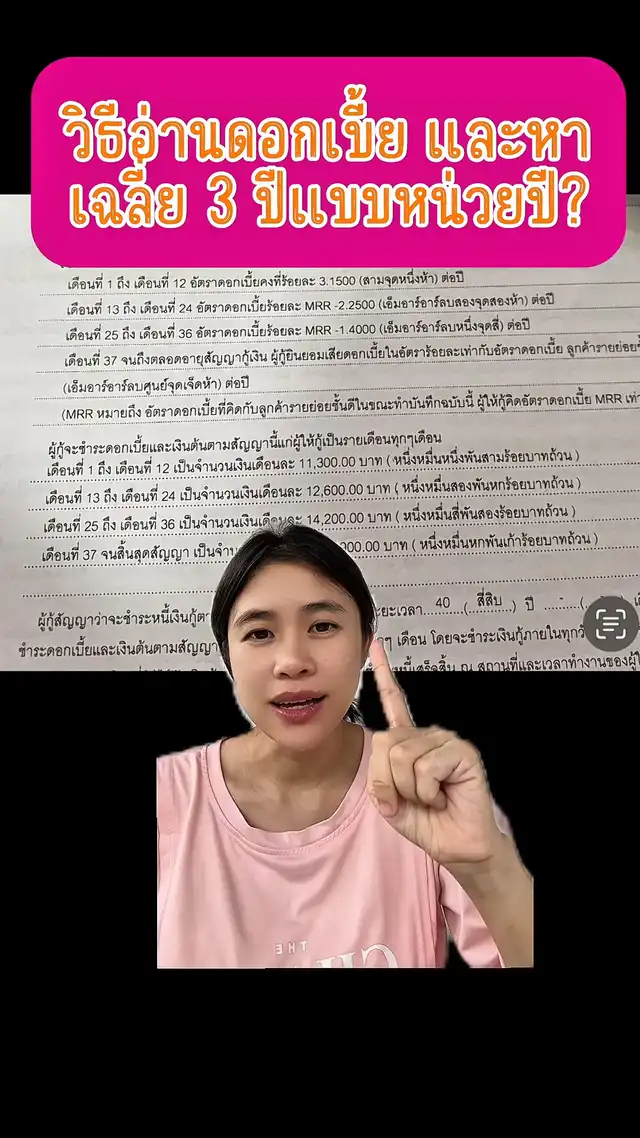 วิธีอ่านดอกเบี้ย และหา
เฉลี่ย 3 ปีแบบหน่วยปี?
เดือนที่ 1 ถึง เดือนที่ 12 อัตราดอกเบี้ยคงที่ร้อยละ 3.1500 (สามจุดหนึ่งห้า) ต่อปี
เดือนที่ 13 ถึง เดือนที่ 24 อัตราดอกเบี้ยร้อยละ MRR -2.2500 (เอ็มอาร์อาร์ลบสองจุดสองห้า) ต่อปี
เดือนที่ 25 ถึง เดือนที่ 36 อัตราดอกเบี้ยร้อยละ MRR -1.4000 (เอ็มอาร์อาร์ลบหนึ่งจุดสี่) ต่อปี
เดือนที่ 37 จนถึงตลอดอายุสัญญากู้เงิน ผู้กู้ยินยอมเสียดอกเบี้ยในอัตราร้อยละเท่ากับอัตราดอกเบี้ย ลูกค้ารายย่อย
(เอ็มอาร์อาร์ลบศูนย์จุดเจ็ดห้า) ต่อปี
(MRR หมายถึง อัตราดอกเบี้ยที่คิดกับลูกค้ารายย่อยชั้นดีในขณะทำบันทึกฉบับนี้ ผู้ให้กู้คิดอัตราดอกเบี้ย MRR เท่า
ผู้กู้จะชำระดอกเบี้ยและเงินต้นตามสัญญานี้แก่ผู้ให้กู้เป็นรายเดือนทุกๆเดือน
เดือนที่ 1 ถึง เดือนที่ 12 เป็นจำนวนเงินเดือนละ 11,300.00 บาท ( หนึ่งหมื่นหนึ่งพันสามร้อยบาทถ้วน )
เดือนที่ 13 ถึง เดือนที่ 24 เป็นจำนวนเงินเดือนละ 12,600.00 บาท ( หนึ่งหมื่นสองพันหกร้อยบาทถ้วน )
เดือนที่ 25 ถึง เดือนที่ 36 เป็นจำนวนเงินเดือนละ 14,200.00 บาท ( หนึ่งหมื่นสี่พันสองร้อยบาทถ้วน )
เดือนที่ 37 จนสิ้นสุดสัญญา เป็นจำน 00.00 บาท ( หนึ่งหมื่นหกพันเก้าร้อยบาทถ้วน )
ผู้กู้สัญญาว่าจะชำระหนี้เงินกู้ต ยะเวลา 40 (สี่สิบ) ปี - (
ชำระดอกเบี้ยและเงินต้นตามสัญญา ๆ เดือน โดยจะชำระเงินกู้ภายในทุกว
หนี้เสร็จสิ้น ณ สถานที่และเวลาทำงานของผู้ให้
THE